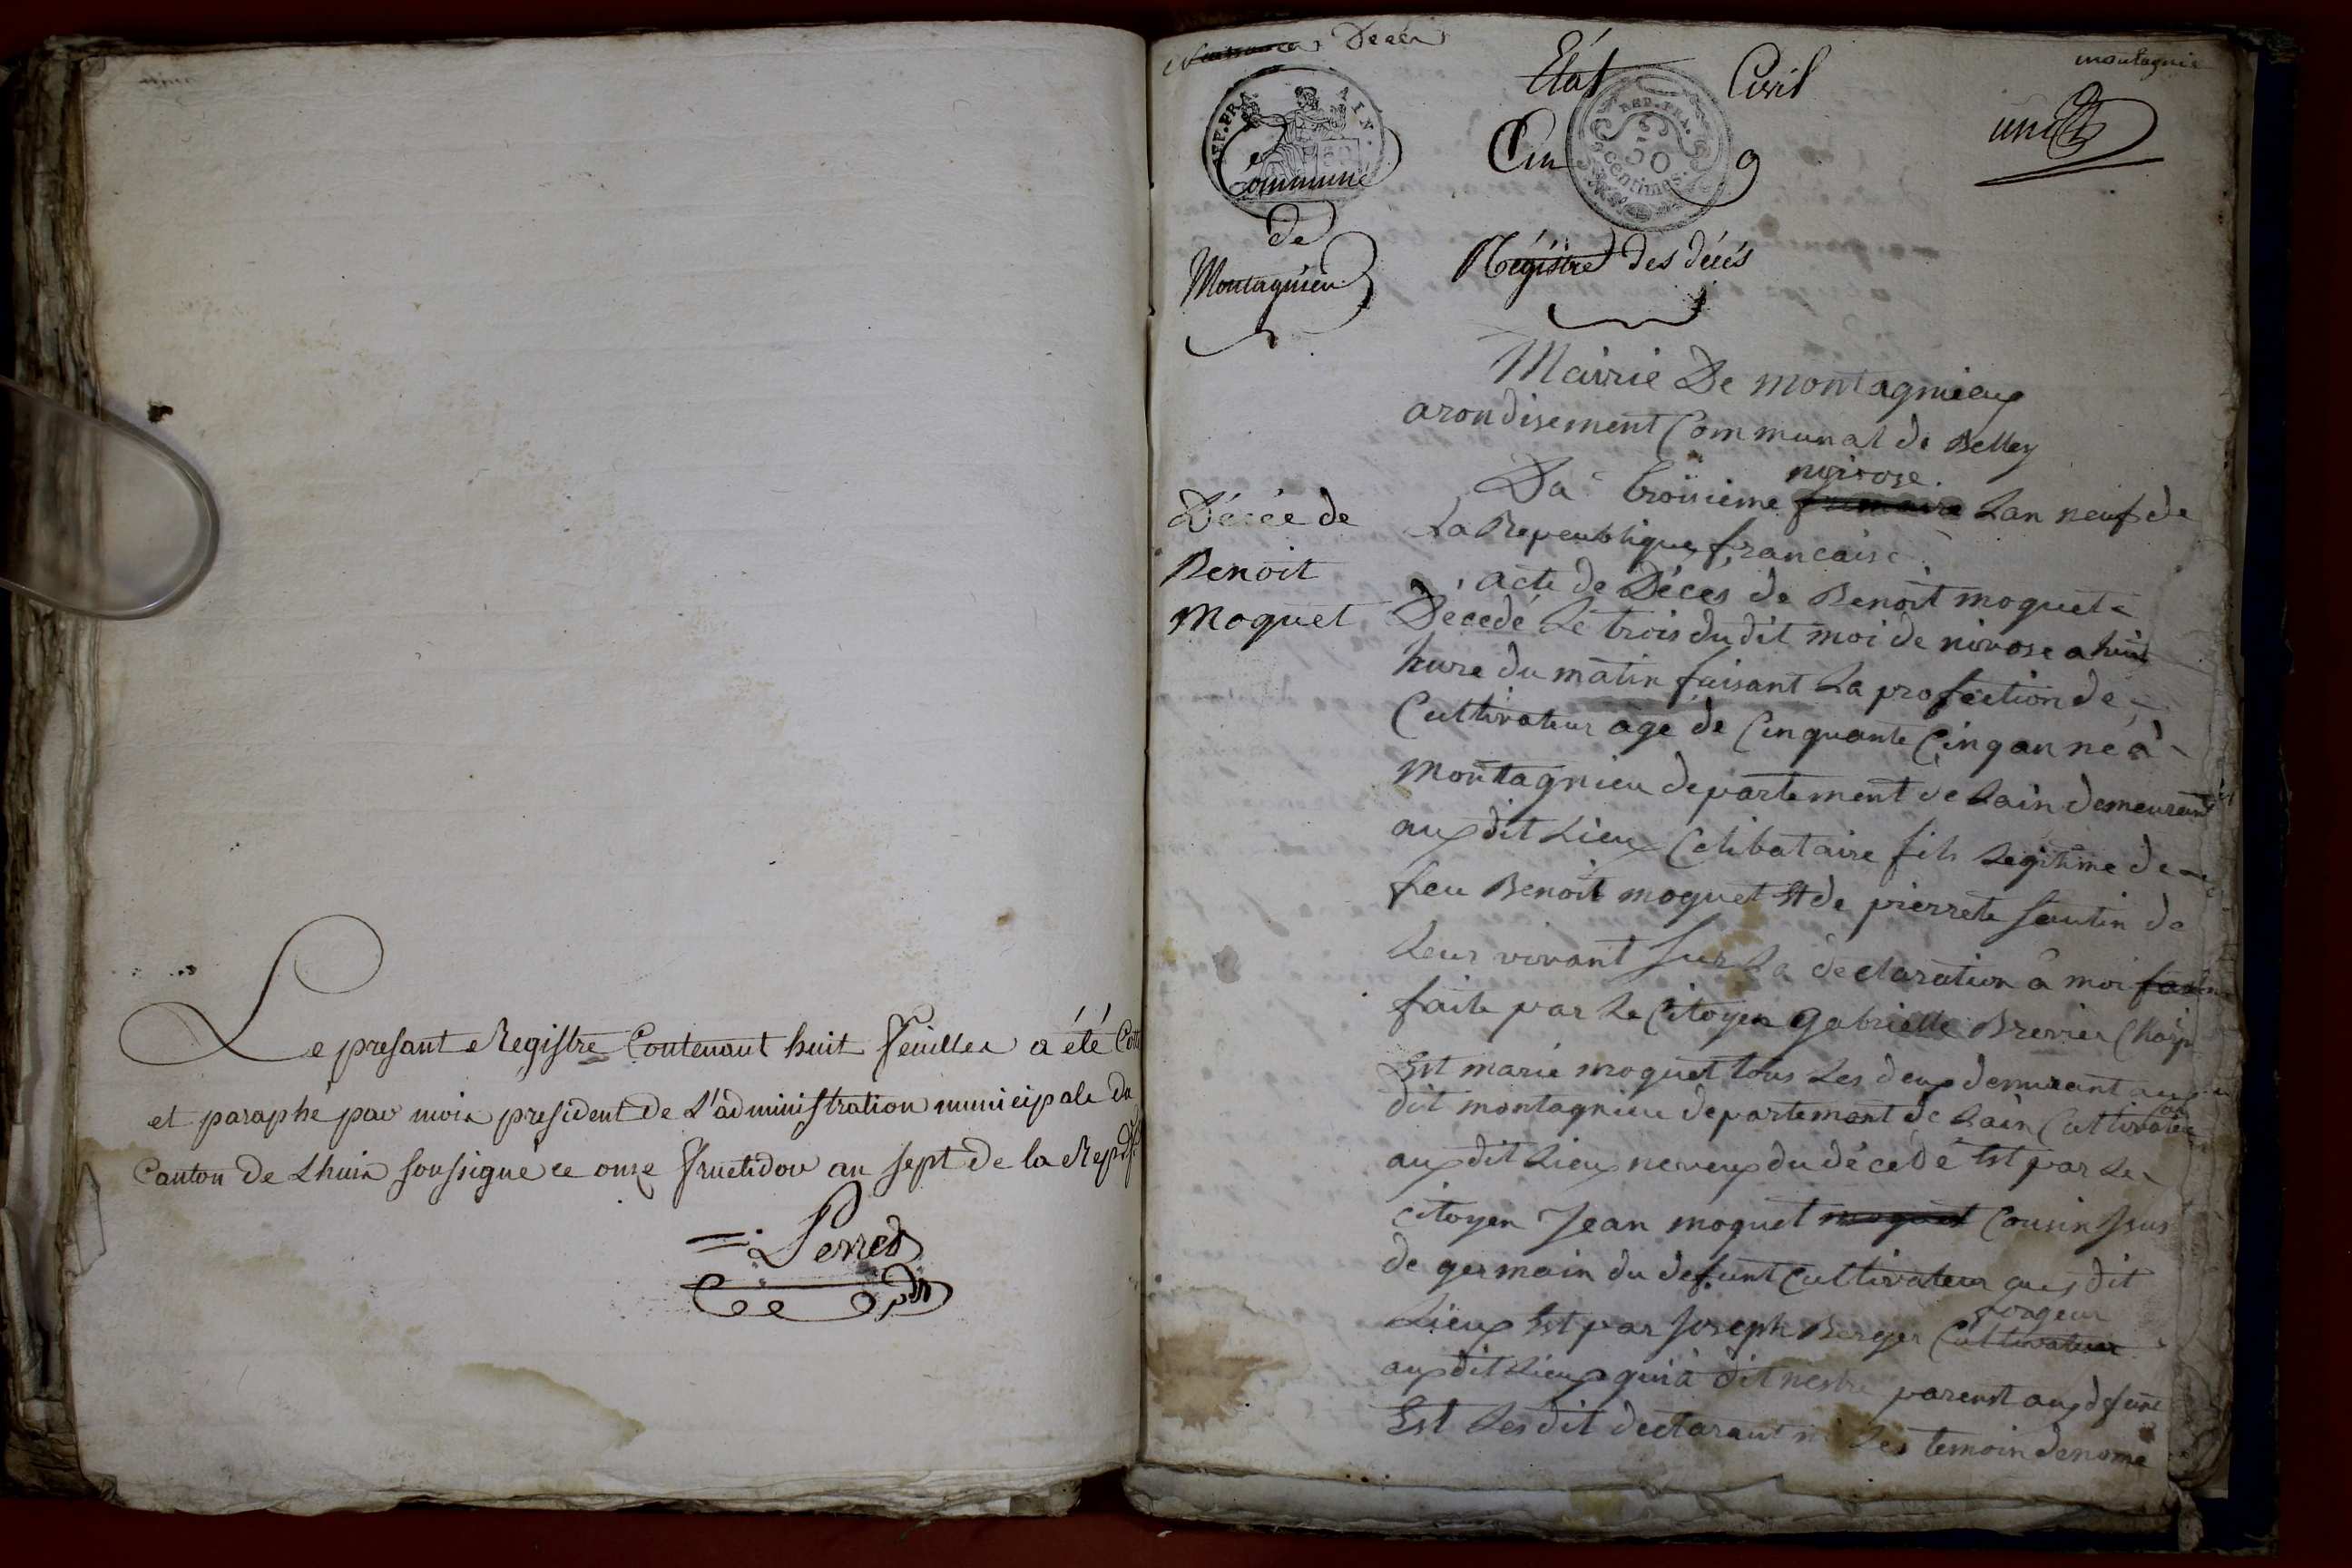 Le presant Registre Contenant huit feuilles a été Cotté
et paraphé par mois president de L'administration municipale du
Canton de Lhuis soussigné ce onze fructidor an sept de la Rep. f.
Perret
pdt
Naissances Decés
montagnie
Etat Civil
unie
AFF. FRA. AIN.
REP. FRA.
50
centimes.
Cin q
Commune
de
Montagnieu
Régistre des décés
Mairie De montagnieux
arondisement Communal de Belley
nivose.
Du troisieme frimaire Lan neuf de
La Repeublique francaise
Décée de
Benoit
Moquet
acte de Déces de Benoit moquet
Décedé Le trois du dit moi de nivose a huit
hure du matin faisant La profection de
Cultivateur age de Cinquante Cinq an né à
Montagnieu departement de Lain demeurant
aux dit Lieux Celibataire fils Legitime de
feu Benoit moquet Et de pierrete Sautin de
Leur vivant Sur La declaration a moi
faite par Le Citoyen Gabrielle Brevier
Est marie moquet tous Les deux demurant aux
dit montagnieu departemant de Lain Cultivateur
aux dit Lieux neveux du décédé Est par Le
citoyen Jean moquet moquet Cousin Jsus
de germain du defunt Cultivateur aux dit
Lieux Est par Joseph Berger Cultivateur
aux dit Lieux qui à dit nestre parent aux dfunt
Est Les dit declarant ni Les temoin denomé